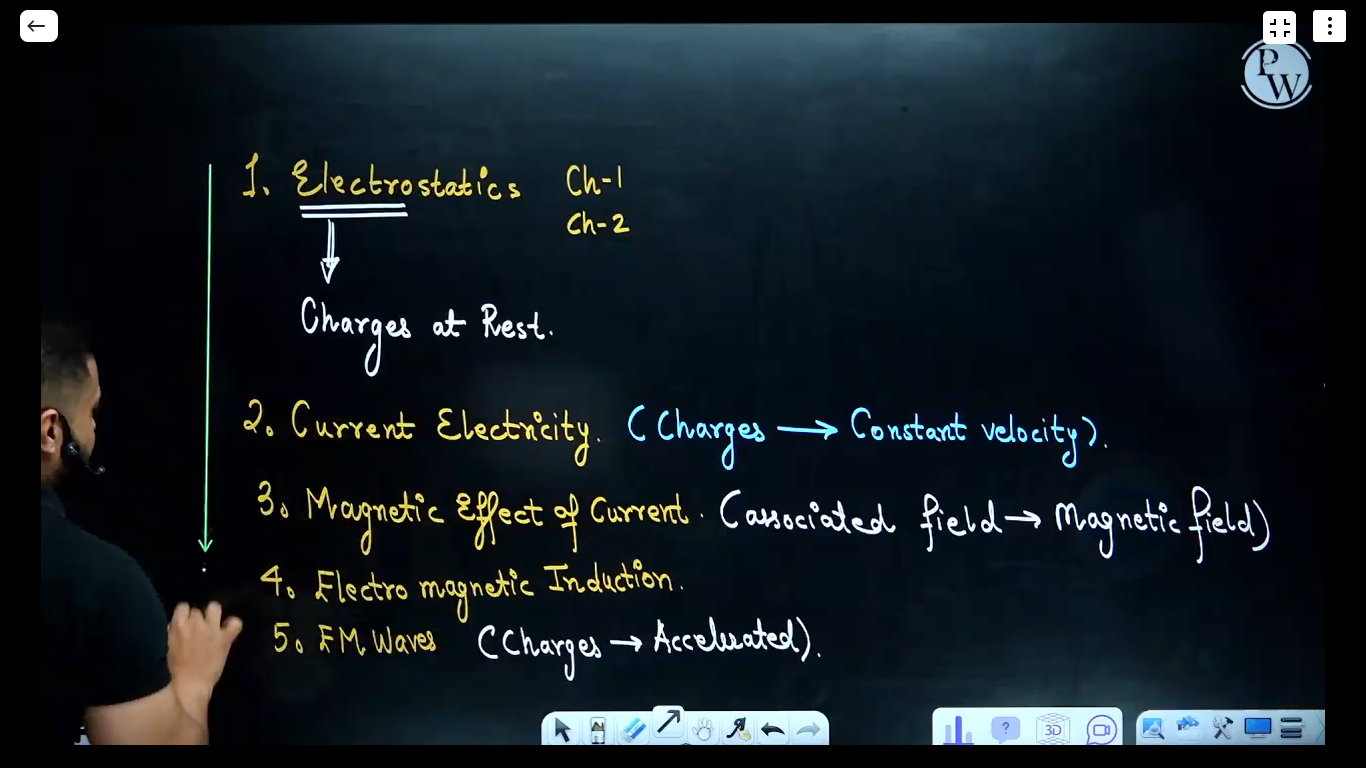 PW
1. Electrostatics Ch-1
Ch-2
Charges at Rest.
2. Current Electricity. (Charges → Constant velocity).
3. Magnetic Effect of Current. (associated field → Magnetic field)
4. Electro magnetic Induction.
5. EM Waves (Charges → Accelerated).
?
3D